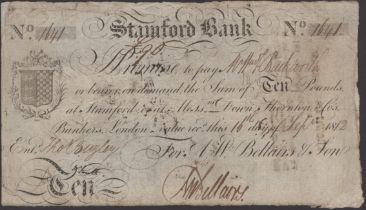 No. 1641 Stamford Bank No. 1641
I Promise to pay
or bearer, on demand the Sum of Ten Pounds,
at Stamford or at Mess.rs Down Thornton & Co.
Bankers, London value rec.d this 10th day of Sept 1812
Ent. Tho. For
Bellairs & Son
Ten
Bellairs